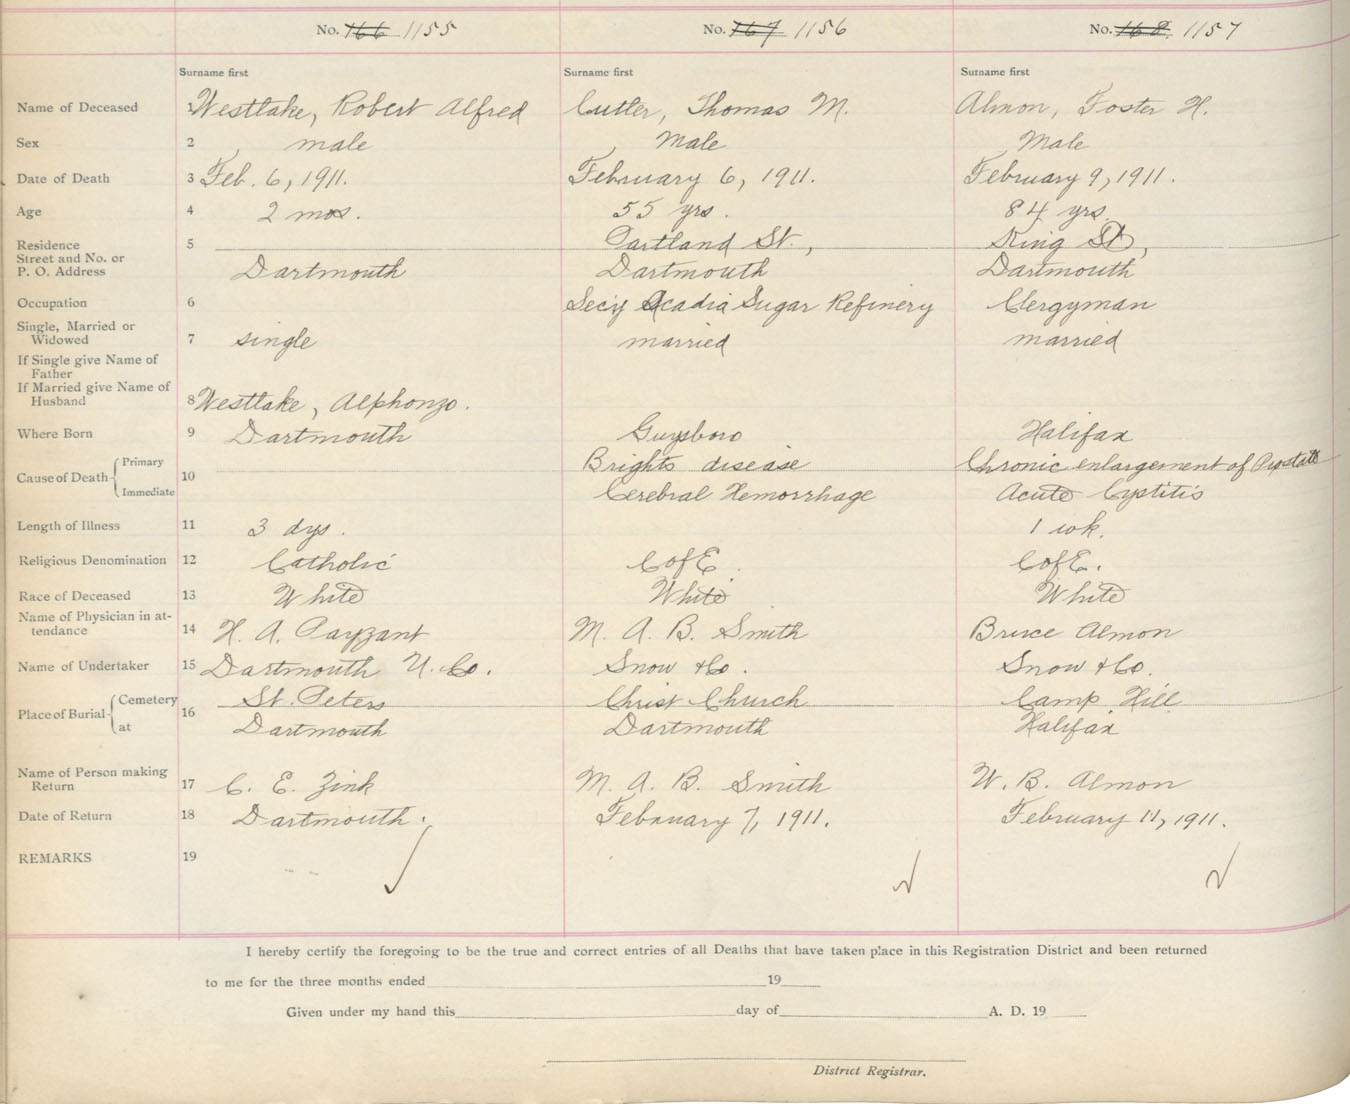 No. 166 1155 No. 167 1156 No. 168. 1157
Surname first Surname first Surname first
Name of Deceased 1 Westlake, Robert Alfred Cutler, Thomas M. Almon, Foster H.
Sex 2 male Male Male
Date of Death 3 Feb. 6, 1911. February 6, 1911. February 9, 1911.
Age 4 2 mos. 55 yrs. 84 yrs.
Residence 5 Partland St., King St,
Street and No. or
P. O. Address Dartmouth Dartmouth Dartmouth
Occupation 6 Secy Acadia Sugar Refinery Clergyman
Single, Married or
Widowed 7 single married married
If Single give Name of
Father
If Married give Name of
Husband 8 Westlake, Alphonzo.
Where Born 9 Dartmouth Guysboro Halifax
Primary Brights disease Chronic enlargement of Prostate
Cause of Death 10
Immediate Cerebral Hemorrhage Acute Cystitis
Length of Illness 11 3 dys. 1 wk.
Religious Denomination 12 Catholic C of E. C of E.
Race of Deceased 13 White White White
Name of Physician in at-
tendance 14 H. A. Payzant M. A. B. Smith Bruce Almon
Name of Undertaker 15 Dartmouth U. Co. Snow & Co. Snow & Co.
Cemetery St. Peters Christ Church Camp Hill
Place of Burial 16
at Dartmouth Dartmouth Halifax
Name of Person making
Return 17 C. E. Zink M. A. B. Smith W. B. Almon
Date of Return 18 Dartmouth. February 7, 1911. February 11, 1911.
REMARKS 19
I hereby certify the foregoing to be the true and correct entries of all Deaths that have taken place in this Registration District and been returned
to me for the three months ended 19
Given under my hand this day of A. D. 19
District Registrar.